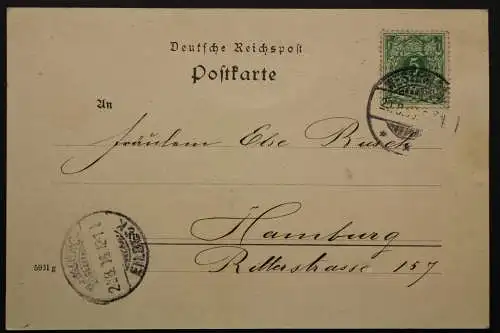 Deutsche Reichspost
Postkarte
5
An
Fräulein Else Rusch
Hamburg
Ritterstrasse 157
5931 g